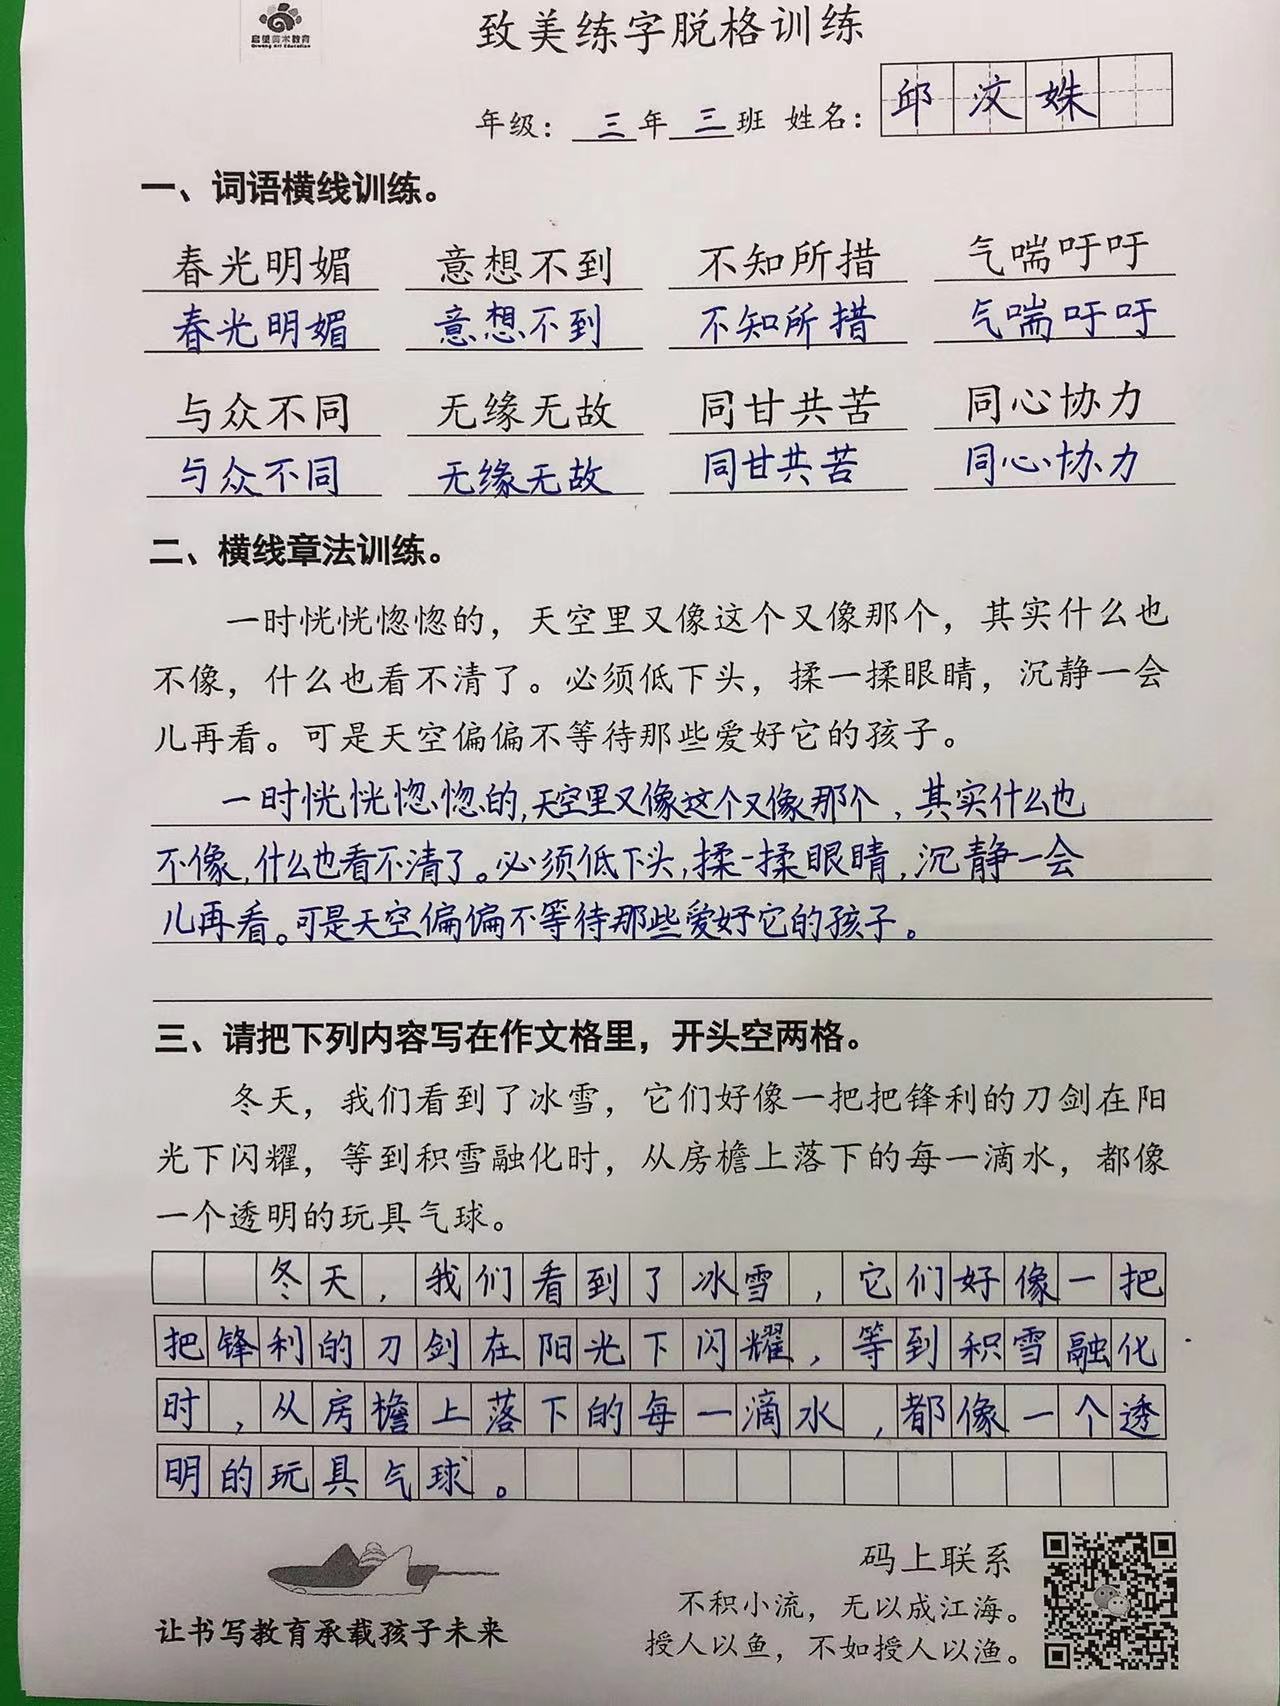 启望美术教育
Qiwang Art Education
致美练字脱格训练
年级：三年三班 姓名：邱汶姝
一、词语横线训练。
春光明媚 意想不到 不知所措 气喘吁吁
春光明媚 意想不到 不知所措 气喘吁吁
与众不同 无缘无故 同甘共苦 同心协力
与众不同 无缘无故 同甘共苦 同心协力
二、横线章法训练。
一时恍恍惚惚的，天空里又像这个又像那个，其实什么也
不像，什么也看不清了。必须低下头，揉一揉眼睛，沉静一会
儿再看。可是天空偏偏不等待那些爱好它的孩子。
一时恍恍惚惚的，天空里又像这个又像那个，其实什么也
不像，什么也看不清了。必须低下头，揉一揉眼睛，沉静一会
儿再看。可是天空偏偏不等待那些爱好它的孩子。
三、请把下列内容写在作文格里，开头空两格。
冬天，我们看到了冰雪，它们好像一把把锋利的刀剑在阳
光下闪耀，等到积雪融化时，从房檐上落下的每一滴水，都像
一个透明的玩具气球。
冬天，我们看到了冰雪，它们好像一把
把锋利的刀剑在阳光下闪耀，等到积雪融化
时，从房檐上落下的每一滴水，都像一个透
明的玩具气球。
码上联系
不积小流，无以成江海。
让书写教育承载孩子未来
授人以鱼，不如授人以渔。